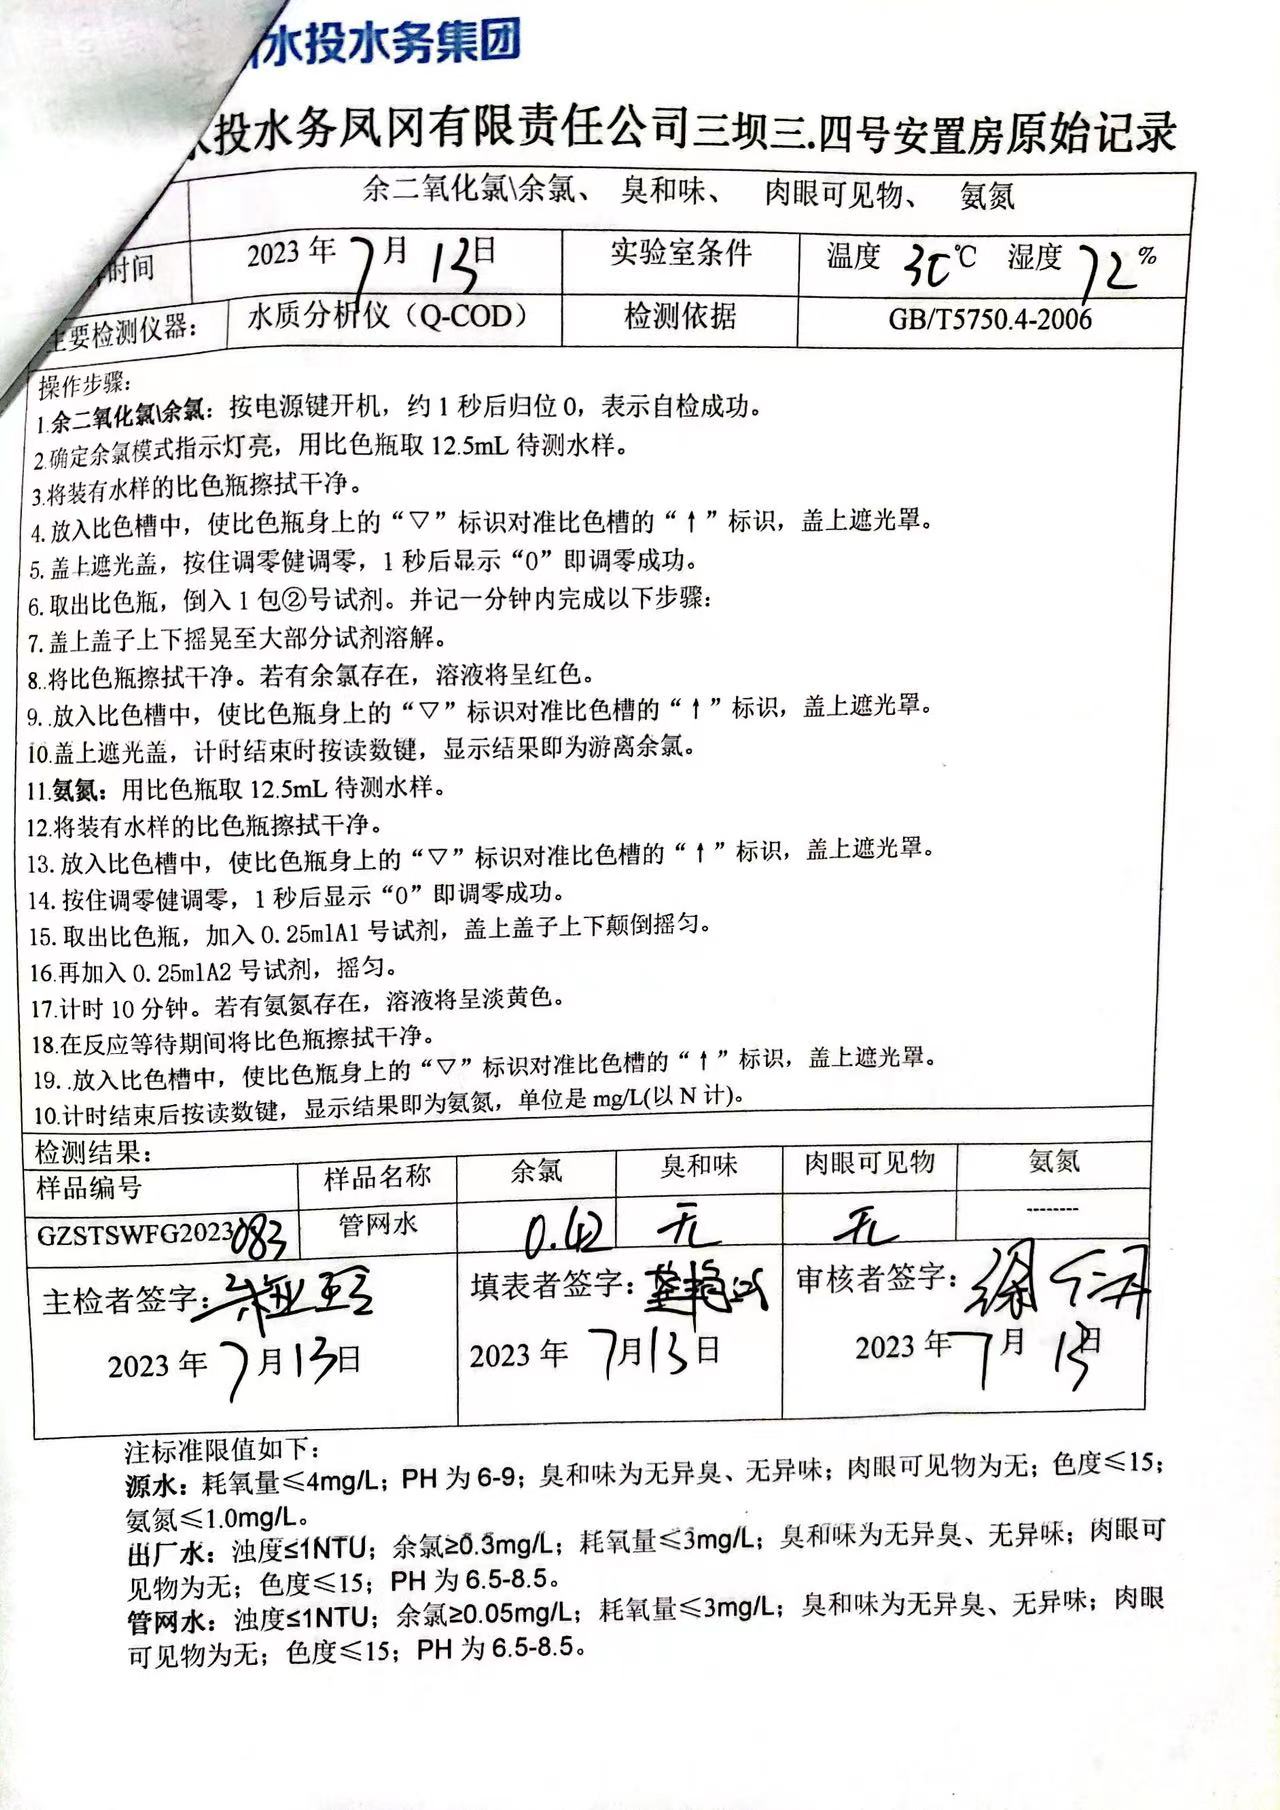 水投水务集团
投水务凤冈有限责任公司三坝三.四号安置房原始记录
余二氧化氯\余氯、 臭和味、 肉眼可见物、 氨氮
时间 2023 年 7 月 13 日 实验室条件 温度 30 ℃ 湿度 72 %
主要检测仪器： 水质分析仪（Q-COD） 检测依据 GB/T5750.4-2006
操作步骤：
1.余二氧化氯\余氯：按电源键开机，约 1 秒后归位 0，表示自检成功。
2.确定余氯模式指示灯亮，用比色瓶取 12.5mL 待测水样。
3.将装有水样的比色瓶擦拭干净。
4.放入比色槽中，使比色瓶身上的“▽”标识对准比色槽的“↑”标识，盖上遮光罩。
5.盖上遮光盖，按住调零健调零，1 秒后显示“0”即调零成功。
6.取出比色瓶，倒入 1 包②号试剂。并记一分钟内完成以下步骤：
7.盖上盖子上下摇晃至大部分试剂溶解。
8..将比色瓶擦拭干净。若有余氯存在，溶液将呈红色。
9. .放入比色槽中，使比色瓶身上的“▽”标识对准比色槽的“↑”标识，盖上遮光罩。
10.盖上遮光盖，计时结束时按读数键，显示结果即为游离余氯。
11.氨氮：用比色瓶取 12.5mL 待测水样。
12.将装有水样的比色瓶擦拭干净。
13. 放入比色槽中，使比色瓶身上的“▽”标识对准比色槽的“↑”标识，盖上遮光罩。
14. 按住调零健调零，1 秒后显示“0”即调零成功。
15. 取出比色瓶，加入 0.25mlA1 号试剂，盖上盖子上下颠倒摇匀。
16.再加入 0.25mlA2 号试剂，摇匀。
17.计时 10 分钟。若有氨氮存在，溶液将呈淡黄色。
18.在反应等待期间将比色瓶擦拭干净。
19. .放入比色槽中，使比色瓶身上的“▽”标识对准比色槽的“↑”标识，盖上遮光罩。
10.计时结束后按读数键，显示结果即为氨氮，单位是 mg/L(以 N 计)。
检测结果：
样品编号 样品名称 余氯 臭和味 肉眼可见物 氨氮
GZSTSWFG2023083 管网水 0.42 无 无 --------
主检者签字： 填表者签字： 审核者签字：
2023 年 7 月 13 日 2023 年 7 月 13 日 2023 年 7 月 13 日
注标准限值如下：
源水：耗氧量≤4mg/L；PH 为 6-9；臭和味为无异臭、无异味；肉眼可见物为无；色度≤15；
氨氮≤1.0mg/L。
出厂水：浊度≤1NTU；余氯≥0.3mg/L；耗氧量≤3mg/L；臭和味为无异臭、无异味；肉眼可
见物为无；色度≤15；PH 为 6.5-8.5。
管网水：浊度≤1NTU；余氯≥0.05mg/L；耗氧量≤3mg/L；臭和味为无异臭、无异味；肉眼
可见物为无；色度≤15；PH 为 6.5-8.5。